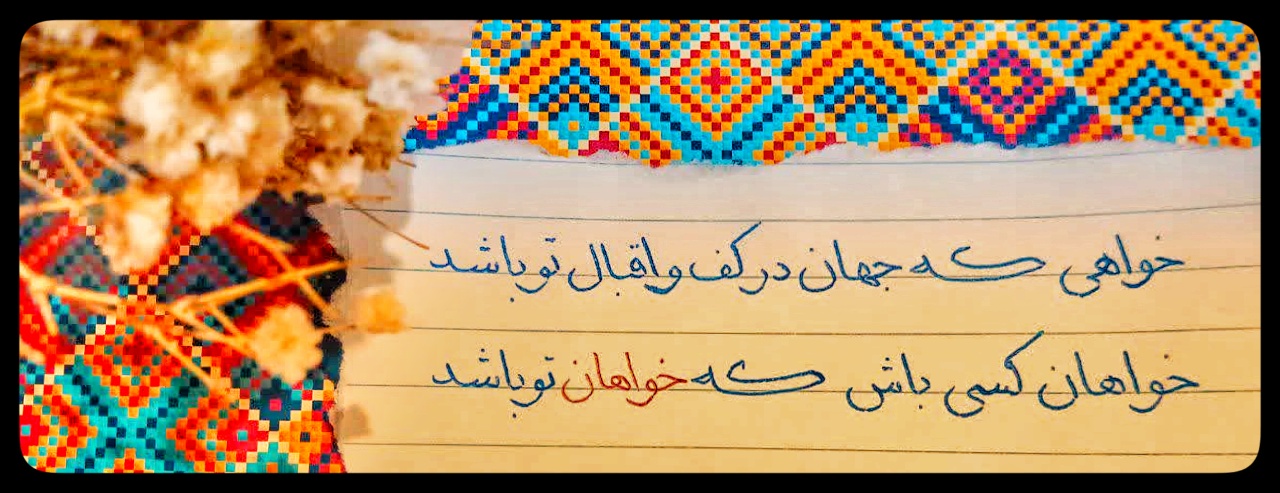 خواهی که جهان در کف و اقبال تو باشد
خواهان کسی باش که خواهان تو باشد